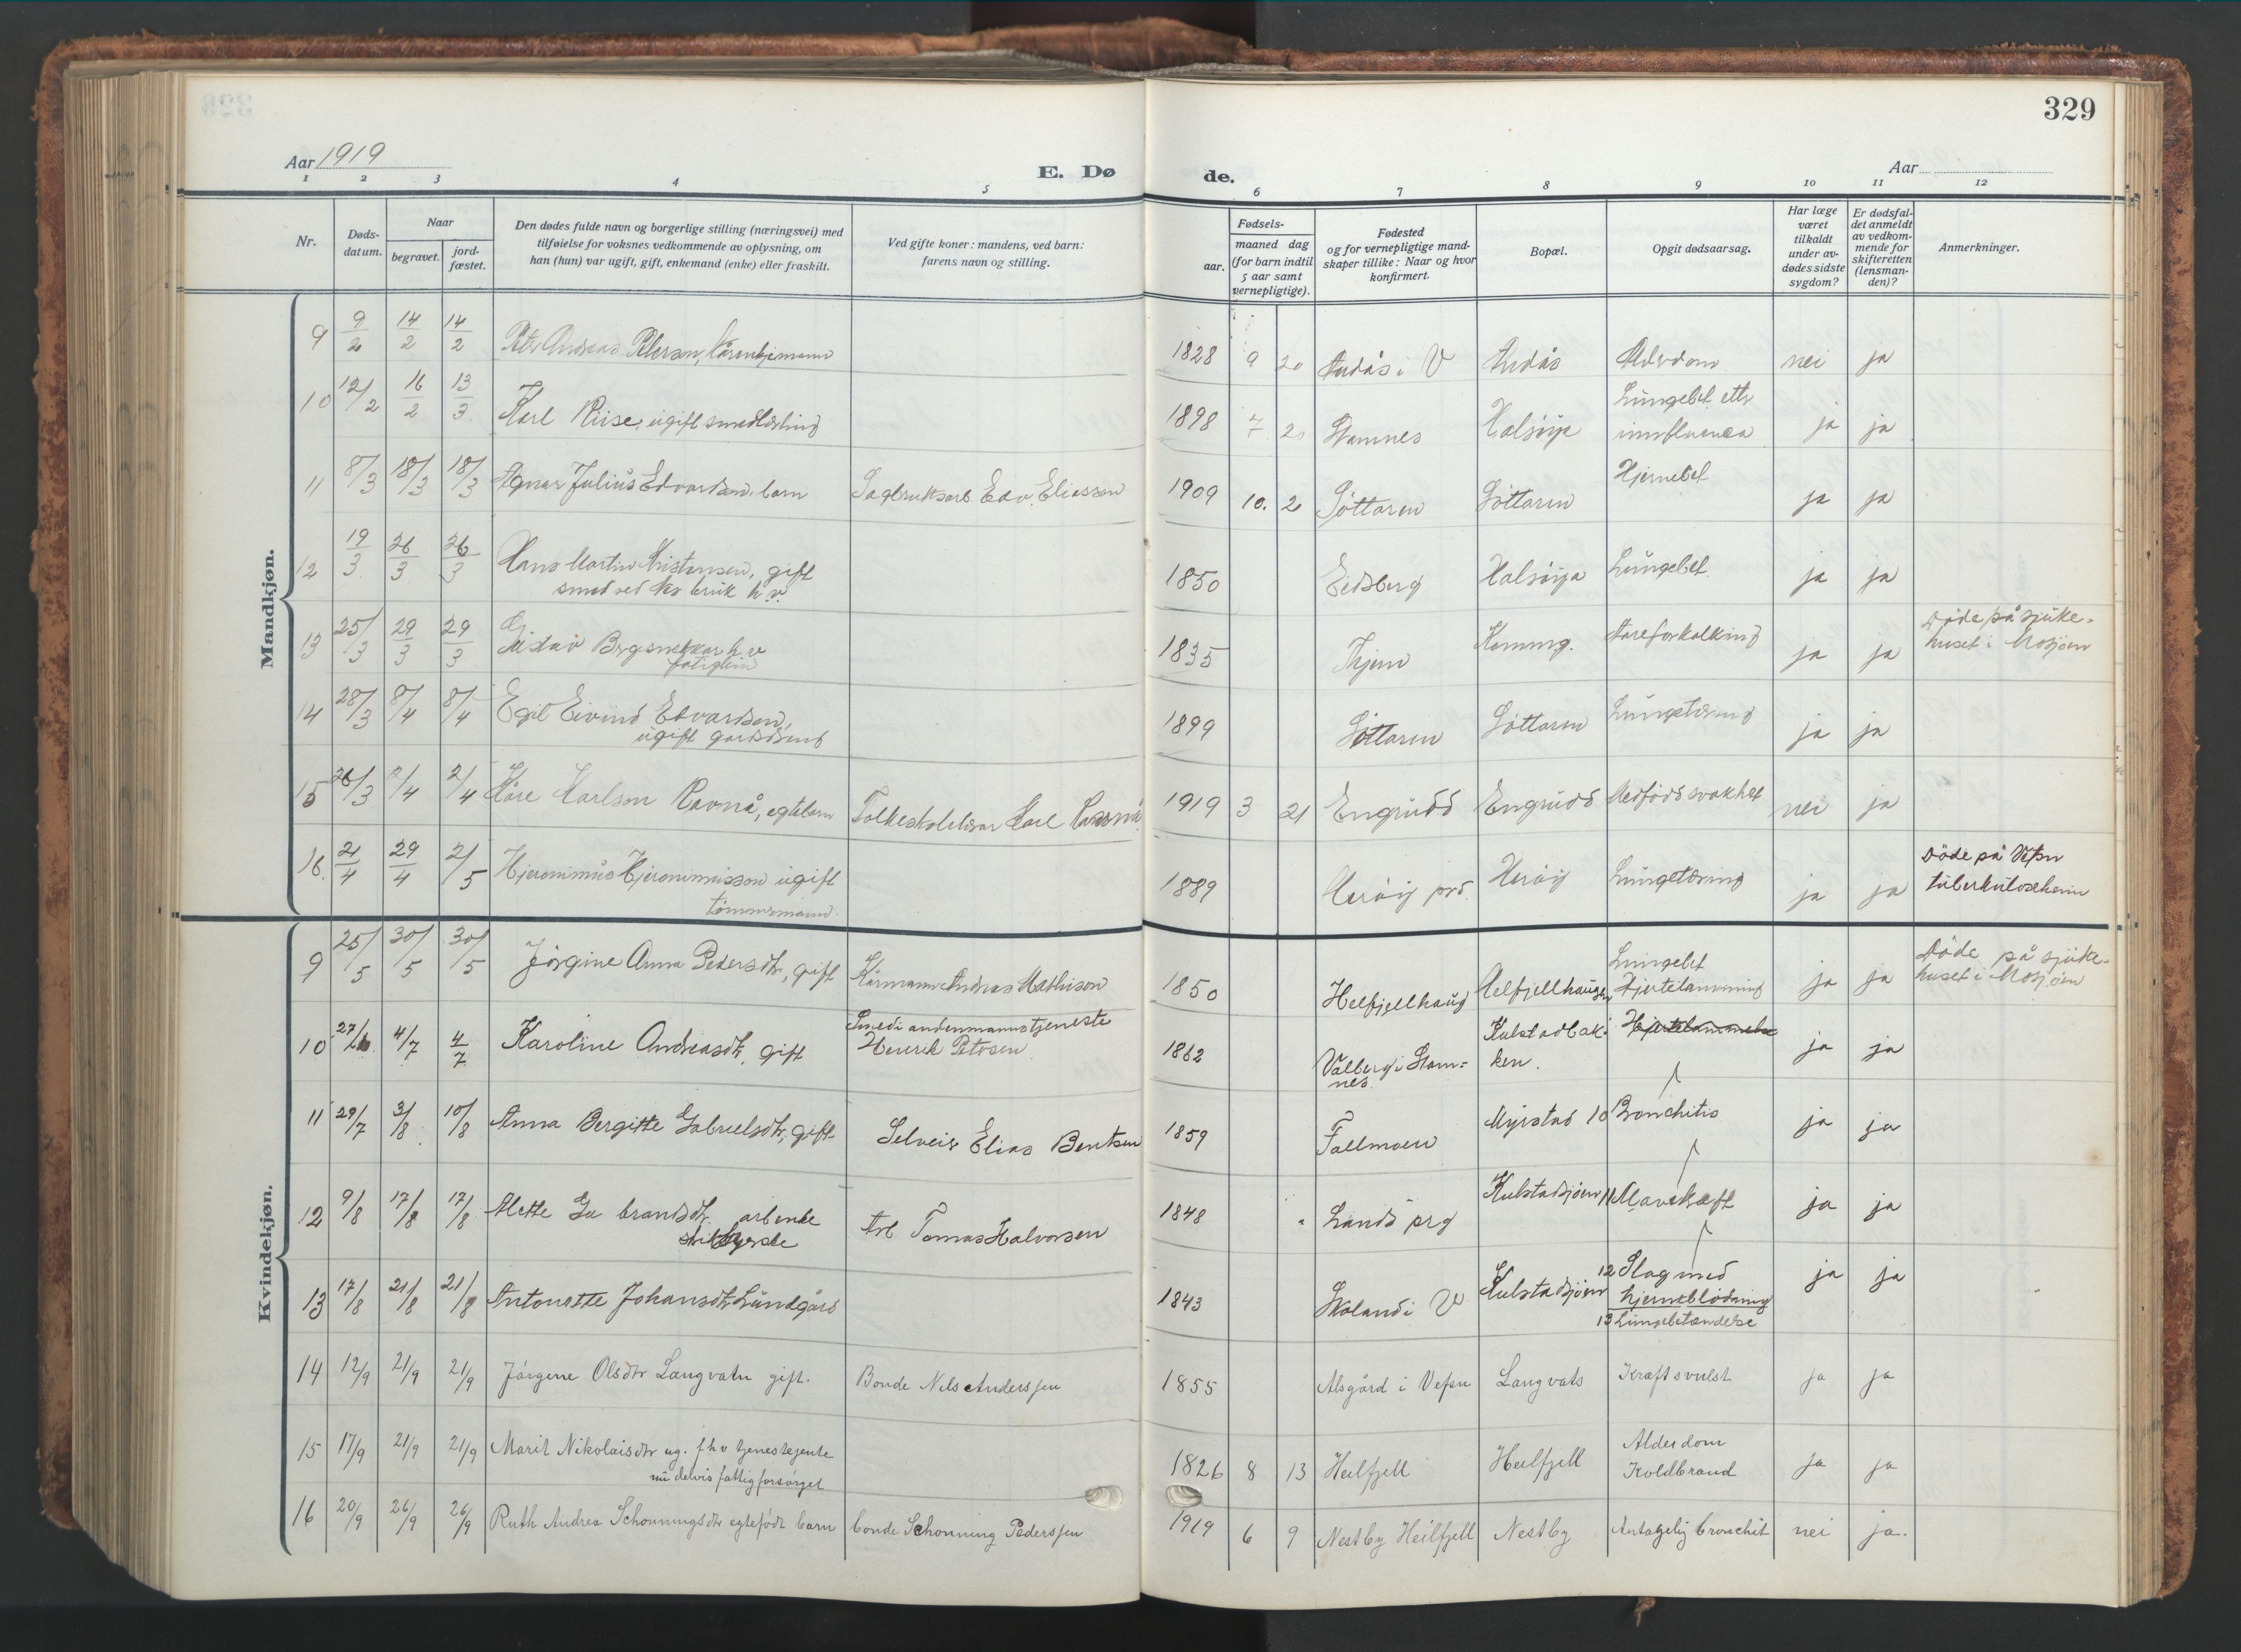 329
Aar 1919
E. Dø
de.
Aar
1 2 3 4 5 6 7 8 9 10 11 12
Nr.
Døds-
datum.
Naar
begravet.
jord-
fæstet.
Den dødes fulde navn og borgerlige stilling (næringsvei) med
tilføielse for voksnes vedkommende av oplysning, om
han (hun) var ugift, gift, enkemand (enke) eller fraskilt.
Ved gifte koner: mandens, ved barn:
farens navn og stilling.
Fødsels-
aar.
maaned dag
(for barn indtil
5 aar samt
vernepligtige).
Fødested
og for vernepligtige mand-
skaper tillike: Naar og hvor
konfirmert.
Bopæl.
Opgit dødsaarsag.
Har læge
været
tilkaldt
under av-
dødes sidste
sygdom?
Er dødsfal-
det anmeldt
av vedkom-
mende for
skifteretten
(lensman-
den)?
Anmerkninger.
Mandkjøn.
9 9/2 14/2 14/2 Peter Andreas Peterson, 1828 9 20 Andås i V Andås Alderdom nei ja
10 12/2 16/2 13/3 Karl Riise, ugift smedlærling 1898 7 20 Stamnes Halsøya Lungebet. ettr
innfluenca ja ja
11 8/3 18/3 18/3 Agnar Julius Edvardsen, barn Sagbruksarb. Edv. Eliassen 1909 10. 2 Søttaren Søttaren Hjernebet ja ja
12 19/3 26/3 26/3 Hans Martin Kristensen, gift
smed ved brük h.v. 1850 Eidsberg Halsöya Lungebet. ja ja
13 25/3 29/3 29/3 h v
1835 Thjem Kommg. Aareforkalkning ja ja Döde på sjuke-
huset i Mosjøen
14 28/3 8/4 8/4 Egil Eivind Edvardsen,
ugift 1899 Søttaren Søttaren Lungetæring ja ja
15 26/3 2/4 2/4 Kåre Karlsen Ravnå, egtebarn Folkeskolelærer Karl Ravnå 1919 3 21 Engrudd Engrudd Medfödd svakhet nei ja
16. 21/4 29/4 2/5 Hjeronimus Hjeronimusson ugift
tömmermand 1889 Heröig prd. Heröig Lungetæring ja ja Döde på Vefsn
tuberkulosehein
Kvindekjøn.
9 25/5 30/5 30/5 Jørgine Anna Pedersdtr, gift Kårmann Andreas Mathison 1850 Helfjellhaug Helfjellhaugen Lungebet
Hjertelammning ja ja Döde på sjuke-
huset i Mosjöen
10 27/6 4/7 4/7 Karoline Andreasdtr, gift Smed i andenmanns tjeneste
Henrik Petersen 1862 Valberg i Stam-
nes. Kulstadbak-
ken. Hjertelammelse ja ja
11 29/7 3/8 10/8 Anna Bergitte Gabrielsdtr, gift Selveier Elias Bentsen 1859 Fallmoen Myrstad 10 Bronchitis ja ja
12 9/8 17/8 17/8 Alette Gu brandsdtr. arb enke
Arb. Tomas Halvorsen 1848 Lands prg Kulstadsjøen 11 Mavekræft ja ja
13 17/8 21/8 21/8 Antonette Johansdtr Lundgård 1843 Skoland i V Kulstadsjøen 12 Slag med
hjerneblödning
13 Lungebetændelse ja ja
14 12/9 21/9 21/9 Jörgine Olsdtr Langvatn gift. Bonde Nels Anderssen 1855 Alsgård i Vefsn Langvats Kræftsvulst ja ja
15 17/9 21/9 21/9 Marit Nikolaisdtr ug. fhv tjenestejente
nu delvis fattigforsörget 1826 8 13 Heilfjell Heilfjell Alderdom
Koldbrand ja ja
16 20/9 26/9 26/9 Ruth Andrea Schonningsdtr egtefödt barn bonde Schonning Pederssen 1919 6 9 Nestby Heilfjell Nestby Antagelig bronchit nei ja.